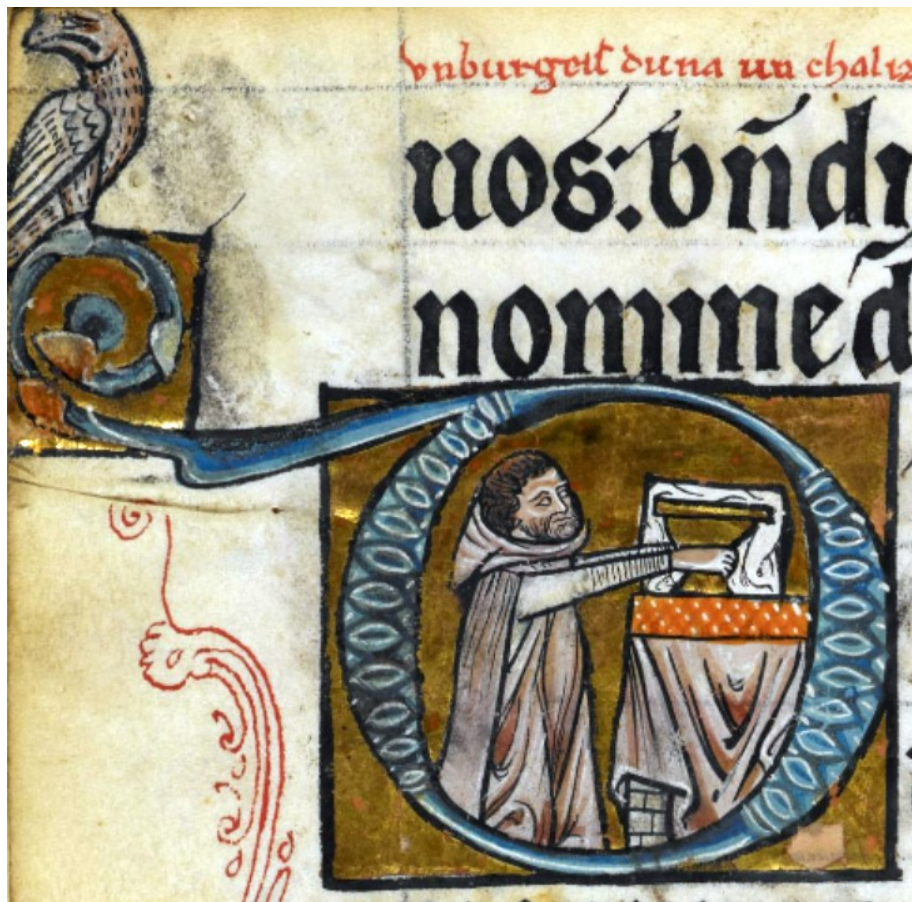 vnburgeis duna un chaliz
uos: bñdi
nomine d